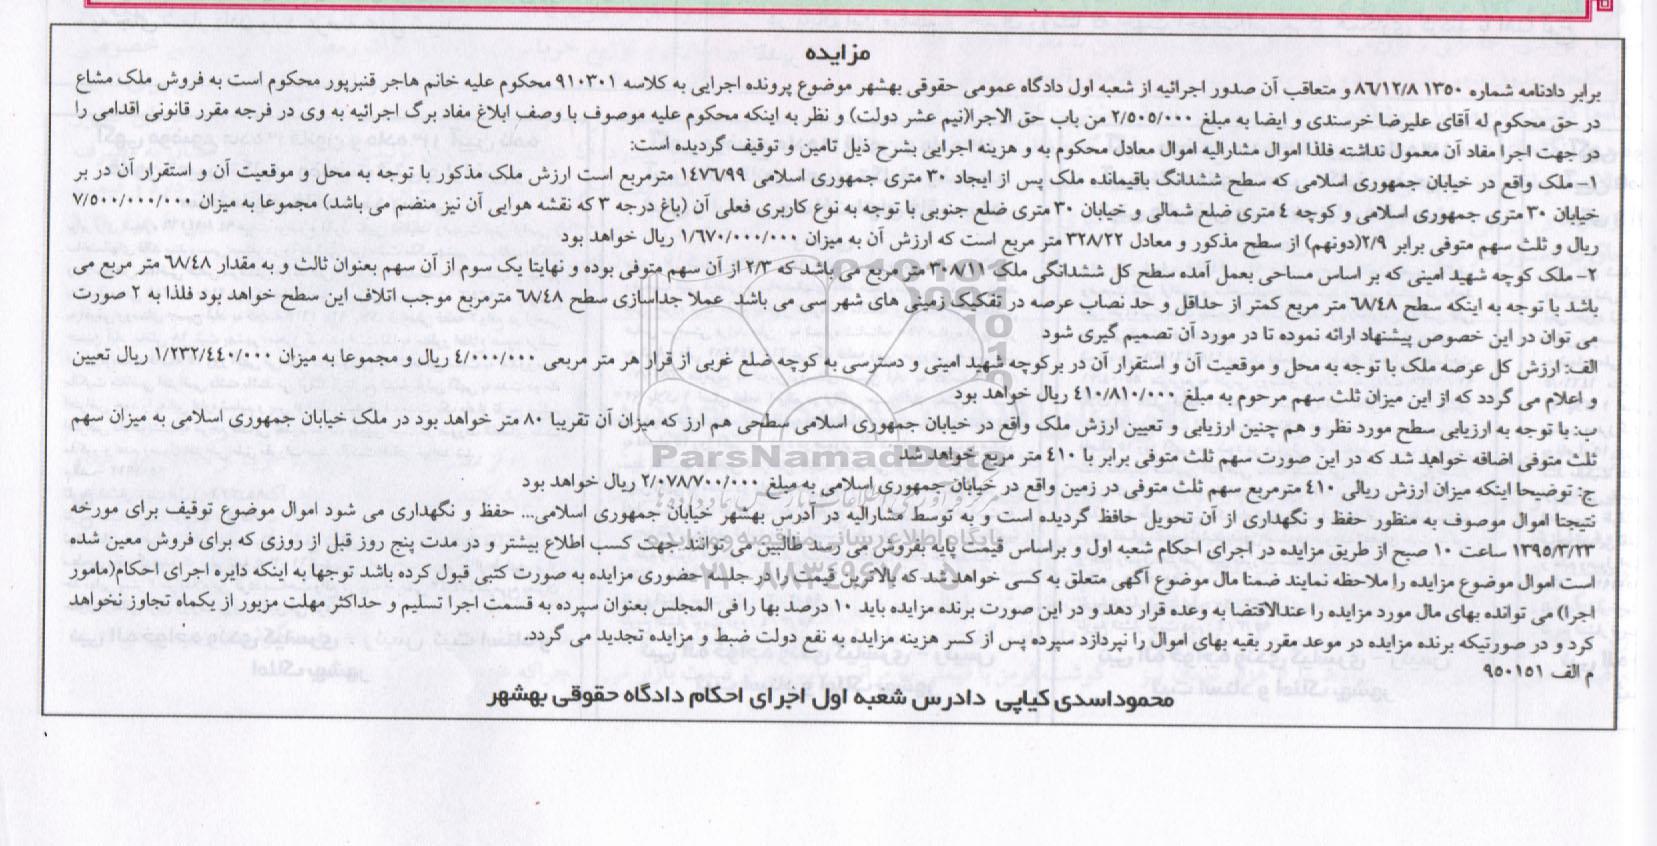 مزایده
برابر دادنامه شماره ۱۳۵۰ ۸۶/۱۲/۸ و متعاقب آن صدور اجرائیه از شعبه اول دادگاه عمومی حقوقی بهشهر موضوع پرونده اجرایی به کلاسه ۹۱۰۳۰۱ محکوم علیه خانم هاجر قنبرپور محکوم است به فروش ملک مشاع
در حق محکوم له آقای علیرضا خرسندی و ایضا به مبلغ ۲/۵۰۵/۰۰۰ من باب حق الاجرا(نیم عشر دولت) و نظر به اینکه محکوم علیه موصوف با وصف ابلاغ مفاد برگ اجرائیه به وی در فرجه مقرر قانونی اقدامی را
در جهت اجرا مفاد آن معمول نداشته فلذا اموال مشارالیه اموال معادل محکوم به و هزینه اجرایی بشرح ذیل تامین و توقیف گردیده است:
۱- ملک واقع در خیابان جمهوری اسلامی که سطح ششدانگ باقیمانده ملک پس از ایجاد ۳۰ متری جمهوری اسلامی ۱۴۷۶/۹۹ مترمربع است ارزش ملک مذکور با توجه به محل و موقعیت آن و استقرار آن در بر
خیابان ۳۰ متری جمهوری اسلامی و کوچه ٤ متری ضلع شمالی و خیابان ۳۰ متری ضلع جنوبی با توجه به نوع کاربری فعلی آن (باغ درجه ۳ که نقشه هوایی آن نیز منضم می باشد) مجموعا به میزان ۷/۵۰۰/۰۰۰/۰۰۰
ریال و ثلث سهم متوفی برابر ۲/۹(دونهم) از سطح مذکور و معادل ۳۲۸/۲۲ متر مربع است که ارزش آن به میزان ۱/۶۷۰/۰۰۰/۰۰۰ ریال خواهد بود
۲- ملک کوچه شهید امینی که بر اساس مساحی بعمل آمده سطح کل ششدانگی ملک ۳۰۸/۱۱ متر مربع می باشد که ۲/۳ از آن سهم متوفی بوده و نهایتا یک سوم از آن سهم بعنوان ثالث و به مقدار ۶۸/٤۸ متر مربع می
باشد با توجه به اینکه سطح ۶۸/٤۸ متر مربع کمتر از حداقل و حد نصاب عرصه در تفکیک زمینی های شهر سی می باشد عملا جداسازی سطح ۶۸/٤۸ مترمربع موجب اتلاف این سطح خواهد بود فلذا به ۲ صورت
می توان در این خصوص پیشنهاد ارائه نموده تا در مورد آن تصمیم گیری شود
الف: ارزش کل عرصه ملک با توجه به محل و موقعیت آن و استقرار آن در برکوچه شهید امینی و دسترسی به کوچه ضلع غربی از قرار هر متر مربعی ٤/۰۰۰/۰۰۰ ریال و مجموعا به میزان ۱/۲۳۲/٤٤۰/۰۰۰ ریال تعیین
و اعلام می گردد که از این میزان ثلث سهم مرحوم به مبلغ ٤۱۰/۸۱۰/۰۰۰ ریال خواهد بود
ب: با توجه به ارزیابی سطح مورد نظر و هم چنین ارزیابی و تعیین ارزش ملک واقع در خیابان جمهوری اسلامی سطحی هم ارز که میزان آن تقریبا ۸۰ متر خواهد بود در ملک خیابان جمهوری اسلامی به میزان سهم
ثلث متوفی اضافه خواهد شد که در این صورت سهم ثلث متوفی برابر با ٤۱۰ متر مربع خواهد شد
ج: توضیحا اینکه میزان ارزش ریالی ٤۱۰ مترمربع سهم ثلث متوفی در زمین واقع در خیابان جمهوری اسلامی به مبلغ ۲/۰۷۸/۷۰۰/۰۰۰ ریال خواهد بود
نتیجتا اموال موصوف به منظور حفظ و نگهداری از آن تحویل حافظ گردیده است و به توسط مشارالیه در آدرس بهشهر خیابان جمهوری اسلامی... حفظ و نگهداری می شود اموال موضوع توقیف برای مورخه
۱۳۹۵/۳/۲۳ ساعت ۱۰ صبح از طریق مزایده در اجرای احکام شعبه اول و براساس قیمت پایه بفروش می رسد طالبین می توانند جهت کسب اطلاع بیشتر و در مدت پنج روز قبل از روزی که برای فروش معین شده
است اموال موضوع مزایده را ملاحظه نمایند ضمنا مال موضوع آگهی متعلق به کسی خواهد شد که بالاترین قیمت را در جلسه حضوری مزایده به صورت کتبی قبول کرده باشد توجها به اینکه دایره اجرای احکام(مامور
اجرا) می توانده بهای مال مورد مزایده را عندالاقتضا به وعده قرار دهد و در این صورت برنده مزایده باید ۱۰ درصد بها را فی المجلس بعنوان سپرده به قسمت اجرا تسلیم و حداکثر مهلت مزبور از یکماه تجاوز نخواهد
کرد و در صورتیکه برنده مزایده در موعد مقرر بقیه بهای اموال را نپردازد سپرده پس از کسر هزینه مزایده به نفع دولت ضبط و مزایده تجدید می گردد.
م الف ۹۵۰۱۵۱
محموداسدی کیاپی دادرس شعبه اول اجرای احکام دادگاه حقوقی بهشهر
ParsNamadData
پایگاه اطلاع رسانی مناقصه و مزایده